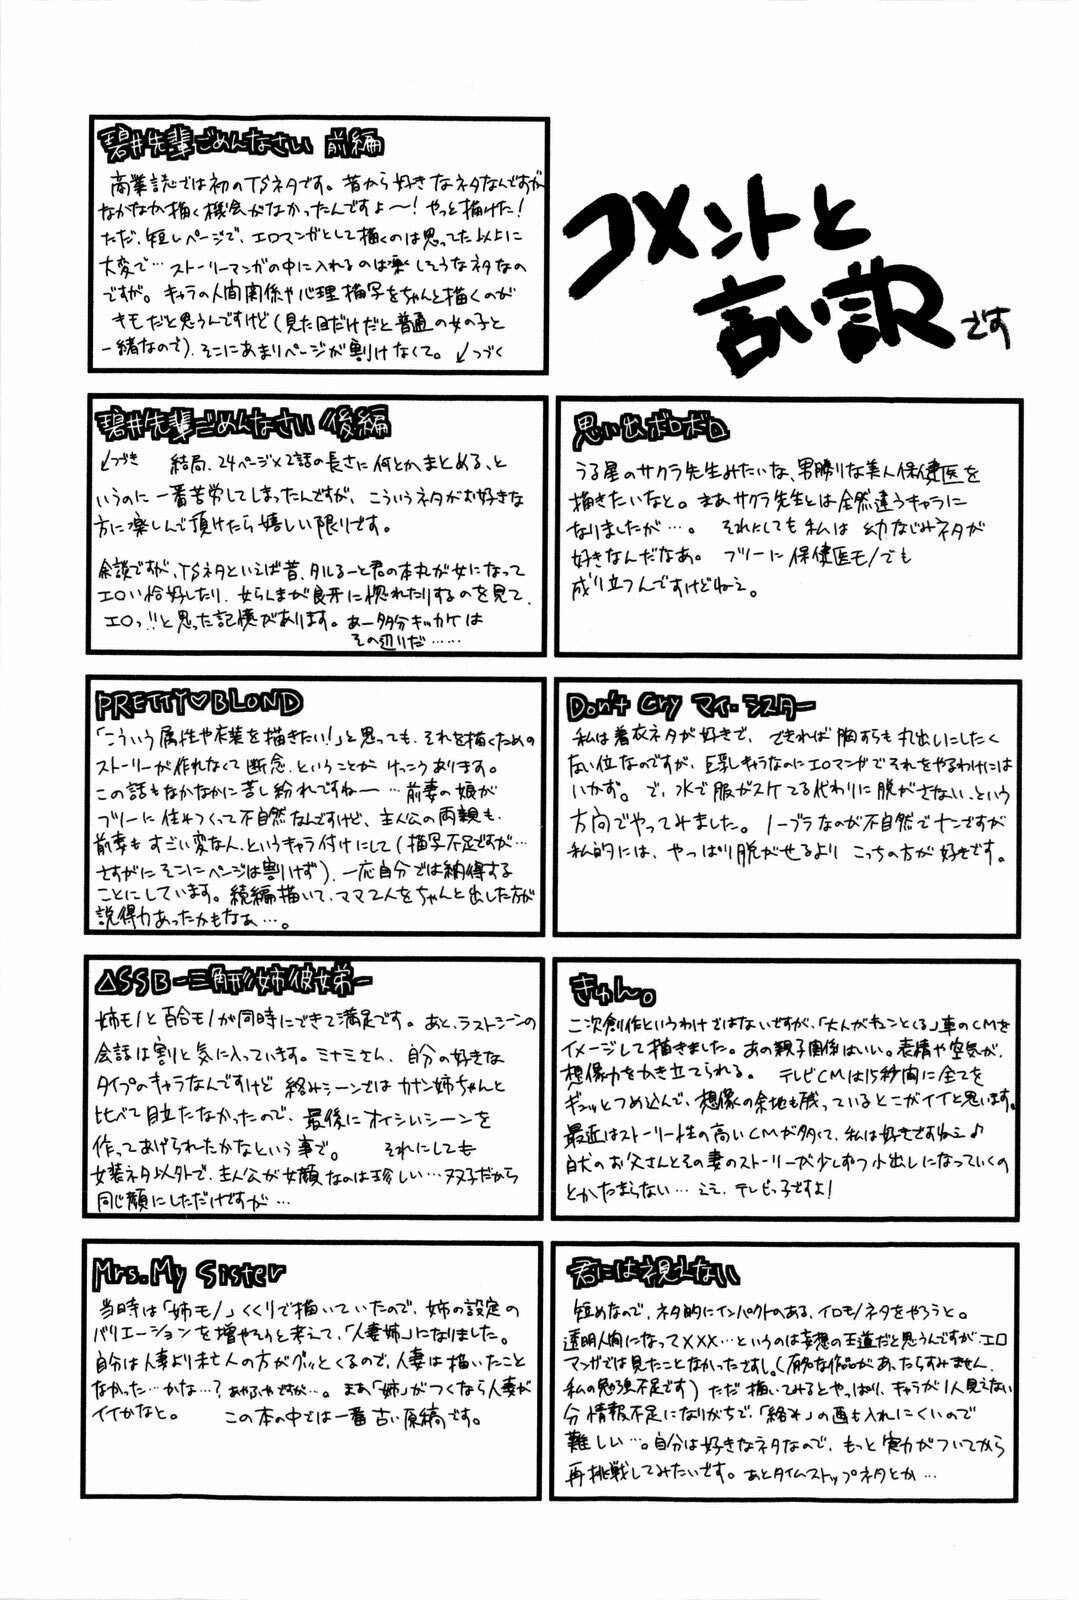 コメントと
言い訳です
碧井先輩ごめんなさい 前編
商業誌では初のTSネタです。昔から好きなネタなんですが
なかなか描く機会がなかったんですよ〜!やっと描けた!
ただ、短いページで、エロマンガとして描くのは思ってた以上に
大変で…ストーリーマンガの中に入れるのは楽しそうなネタなの
ですが。キャラの人間関係や心理描写をちゃんと描くのが
キモだと思うんですけど(見た目だけだと普通の女の子と
一緒なので)、そこにあまりページが割けなくて。↙つづく
碧井先輩ごめんなさい 後編
↙つづき 結局、24ページ×2話の長さに何とかまとめる、と
いうのに一番苦労してしまったんですが、こういうネタがお好きな
方に楽しんで頂けたら嬉しい限りです。
余談ですが、TSネタといえば昔、タルるート君の本丸が女になって
エロい恰好したり、女らんまが良牙に惚れたりするのを見て、
エロっ!!と思った記憶があります。あー多分キッカケは
その辺りだ……
思い出ボロボロ
うる星のサクラ先生みたいな、男勝りな美人保健医を
描きたいなと。まあサクラ先生とは全然違うキャラに
なりましたが…。それにしても私は幼なじみネタが
好きなんだなあ。フツーに保健医モノでも
成り立つんですけどねえ。
PRETTY♡BLOND
「こういう属性や衣装を描きたい!」と思っても、それを描くための
ストーリーが作れなくて断念、ということがけっこうあります。
この話もなかなかに苦し紛れですね〜…前妻の娘が
フツーに住みついてて不自然なんですけど、主人公の両親も、
前妻もすごい変な人、というキャラ付けにして(描写不足ですが…
さすがにそこにページは割けず)、一応自分では納得する
ことにしています。続編描いて、ママ2人をちゃんと出した方が
説得力あったかもなぁ…。
Don't Cry マイ・シスター
私は着衣ネタが好きで、できれば胸すらも丸出しにしたく
ない位なのですが、巨乳キャラなのにエロマンガでそれをやるわけには
いかず。で、水で服がスケてる代わりに脱がさない、という
方向でやってみました。ノーブラなのが不自然でナンですが
私的には、やっぱり脱がせるよりこっちの方が好きです。
△SSB-三角形姉彼女弟-
姉モノと百合モノが同時にできて満足です。あと、ラストシーンの
会話は割と気に入っています。ミナミさん、自分の好きな
タイプのキャラなんですけど絡みシーンではカナン姉ちゃんと
比べて目立たなかったので、最後にオイシいシーンを
作ってあげられたかなという事で。それにしても
女装ネタ以外で、主人公が女顔なのは珍しい…双子だから
同じ顔にしただけですが…
きゅん。
二次創作というわけではないですが、「大人がキュンとくる」車のCMを
イメージして描きました。あの親子関係はいい。表情や空気が、
想像力をかき立てられる。テレビCMは15秒間に全てを
ギュッとつめ込んで、想像の余地も残っているとこがイイと思います。
最近はストーリー性の高いCMが多くて、私は好きですねえ♪
白犬のお父さんとその妻のストーリーが少しずつ小出しになっていくの
とかたまらない…ええ、テレビっ子ですよ!
Mrs. My Sister
当時は「姉モノ」くくりで描いていたので、姉の設定の
バリエーションを増やそうと考えて、「人妻姉」になりました。
自分は人妻より未亡人の方がグッとくるので、人妻は描いたこと
なかった…かな…?あやふやですが…。まあ「姉」がつくなら人妻が
イイかなと。この本の中では一番古い原稿です。
君には視えない
短めなので、ネタ的にインパクトのある、イロモノネタをやろうと。
透明人間になって×××…というのは妄想の王道だと思うんですが、エロ
マンガでは見たことなかったですし。(有名な作品があったらすみません、
私の勉強不足です)ただ描いてみるとやっぱり、キャラが1人見えない
分情報不足になりがちで、「絡み」の画も入れにくいので
難しい…。自分は好きなネタなので、もっと実力がついてから
再挑戦してみたいです。あとタイムストップネタとか…